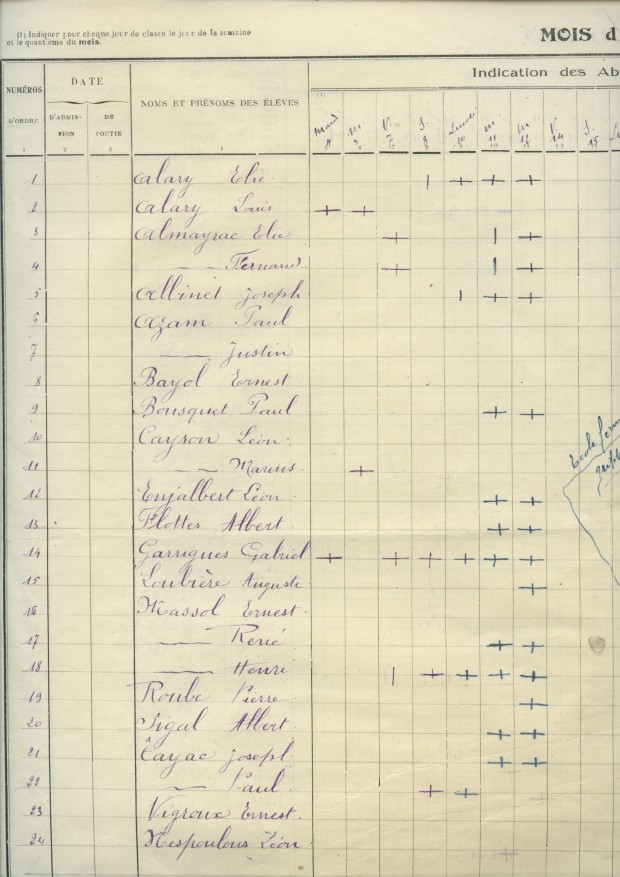 (1) Indiquer pour chaque jour de classe le jour de la semaine
et le quantième du mois.
MOIS d
NUMÉROS
D'ORDRE
1
DATE
D'ADMIS-
SION
2
DE
SORTIE
3
NOMS ET PRÉNOMS DES ÉLÈVES
Indication des Ab
(1)
Mardi M. V. S. Lundi M. M. V. S.
15
1 Alary Elie
2 Alary Louis
3 Almayrac Elie
4 —— Fernand
5 Albinet Joseph
6 Azam Paul
7 —— Justin
8 Bayol Ernest
9 Bousquet Paul
10 Cayron Léon
11 —— Marius
12 Enjalbert Léon
13 Flottes Albert
14 Garrigues Gabriel
15 Loubière Auguste
16 Massol Ernest
17 —— René
18 —— Henri
19 Roube Pierre
20 Sigal Albert
21 Cayac Joseph
22 —— Paul
23 Vigroux Ernest
24 Nespoulous Léon
Ecole